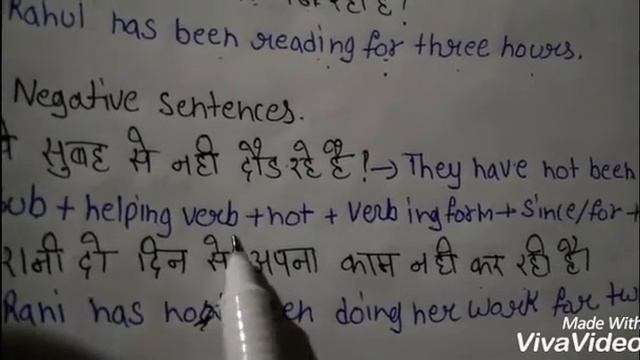 Rahul has been reading for three hours.
Negative Sentences.
सुबह से नही दौड रहे है! → They have not been
Sub + helping verb + not + Verb ing form + Since/for +
रानी दो दिन से अपना काम नही कर रही है।
Rani has doing her work for
Made With
VivaVideo